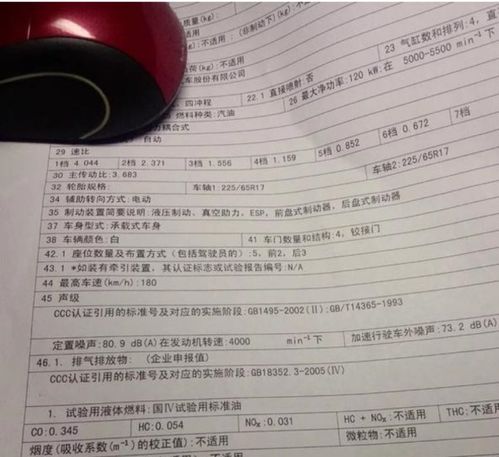 质量(kg):
:不适用
(非制动下)(kg):不适用
:不适用
23 气缸数和排列:4, 直
荷(kg):不适用
车股份有限公司
22.1 直接喷射:否
26 最大净功率:120 kW:在 5000-5500 min⁻¹下
四冲程
燃料种类:汽油
力耦合式
自动
29 速比
1档 4.044 2档 2.371 3档 1.556 4档 1.159 5档 0.852 6档 0.672 7档
30 主传动比:3.683
32 轮胎规格: 车轴1:225/65R17 车轴2:225/65R17
34 辅助转向方式:电动
35 制动装置简要说明:液压制动、真空助力、ESP, 前盘式制动器, 后盘式制动器
37 车身型式:承载式车身
38 车辆颜色:白 41 车门数量和结构:4, 铰接门
42.1 座位数量及布置方式(包括驾驶员的):5, 前2, 后3
43.1 *如装有牵引装置, 其认证标志或试验报告编号:N/A
44 最高车速(km/h):180
45 声级
CCC认证引用的标准号及对应的实施阶段:GB1495-2002(Ⅱ):GB/T14365-1993
定置噪声:80.9 dB(A)在发动机转速:4000 min⁻¹下 加速行驶车外噪声:73.2 dB(A)
46.1. 排气排放物: (企业申报值)
CCC认证引用的标准号及对应的实施阶段:GB18352.3-2005(Ⅳ)
1. 试验用液体燃料:国Ⅳ试验用标准油
CO:0.345 HC:0.054 NOx:0.031 HC + NOx:不适用 THC:不适用
烟度(吸收系数(m⁻¹)的校正值):不适用 微粒物:不适用